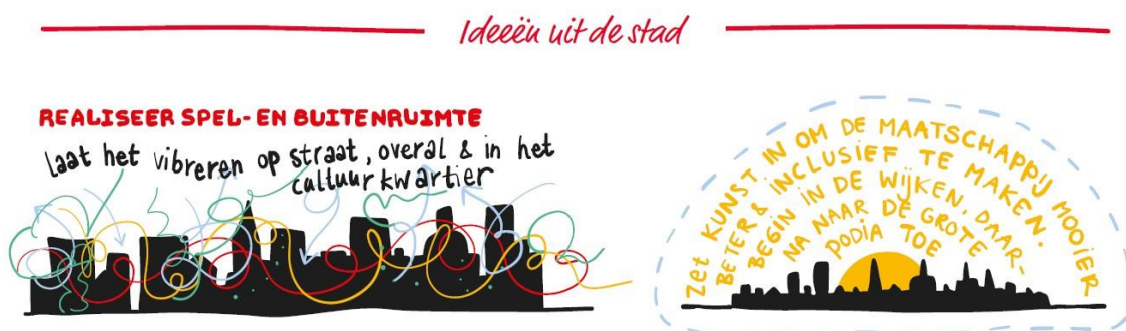 Ideeën uit de stad
REALISEER SPEL- EN BUITENRUIMTE
laat het vibreren op straat, overal & in het
cultuurkwartier
Zet KUNST IN OM DE MAATSCHAPPIJ MOOIER
BETER & INCLUSIEF TE MAKEN.
BEGIN IN DE WIJKEN, DAAR-
NA NAAR DE GROTE
PODIA TOE